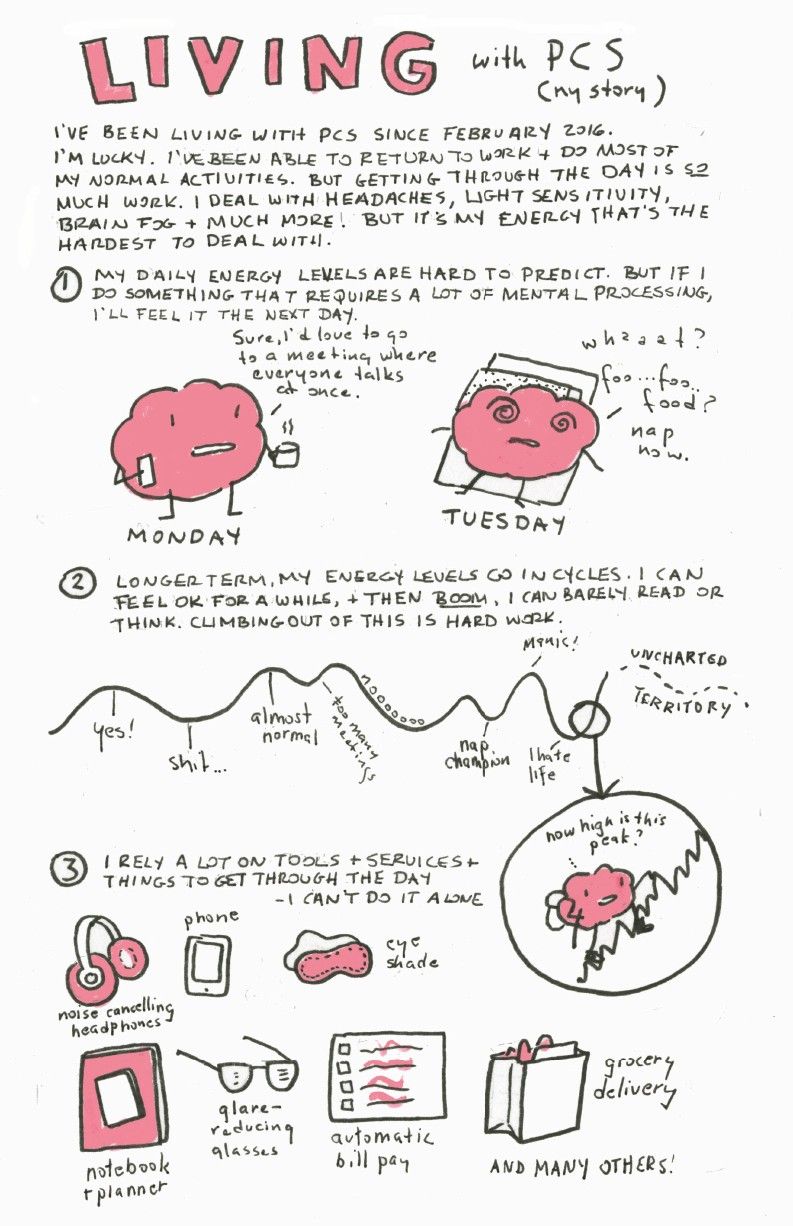 LIVING with PCS
(my story)
I'VE BEEN LIVING WITH PCS SINCE FEBRUARY 2016.
I'M LUCKY. I'VE BEEN ABLE TO RETURN TO WORK + DO MOST OF
MY NORMAL ACTIVITIES. BUT GETTING THROUGH THE DAY IS SO
MUCH WORK. I DEAL WITH HEADACHES, LIGHT SENSITIVITY,
BRAIN FOG + MUCH MORE! BUT IT'S MY ENERGY THAT'S THE
HARDEST TO DEAL WITH.
1 MY DAILY ENERGY LEVELS ARE HARD TO PREDICT. BUT IF I
DO SOMETHING THAT REQUIRES A LOT OF MENTAL PROCESSING,
I'LL FEEL IT THE NEXT DAY.
Sure, I'd love to go
to a meeting where
everyone talks
at once.
MONDAY
whaaat?
foo...foo..
food?
nap
now.
TUESDAY
2 LONGER TERM, MY ENERGY LEVELS GO IN CYCLES. I CAN
FEEL OK FOR A WHILE, + THEN BOOM, I CAN BARELY READ OR
THINK. CLIMBING OUT OF THIS IS HARD WORK.
yes!
shit...
almost
normal
too many
meetings
nooooooo
nap
champion
manic!
I hate
life
UNCHARTED
TERRITORY
how high is this
peak?
3 I RELY A LOT ON TOOLS + SERVICES +
THINGS TO GET THROUGH THE DAY
- I CAN'T DO IT ALONE
noise cancelling
headphones
phone
eye
shade
notebook
+planner
glare-
reducing
glasses
automatic
bill pay
grocery
delivery
AND MANY OTHERS!